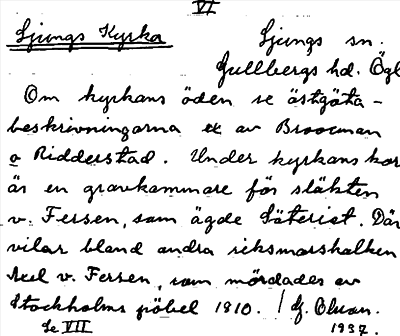 VI
Ljungs Kyrka
Ljungs sn.
Gullbergs hd. Ögl
Om kyrkans öden se östgöta-
beskrivningarna av Broocman
o Ridderstad. Under kyrkans kor
är en gravkammare för släkten
v. Fersen, som ägde Säteriet. Där
vilar bland andra riksmarskalken
Axel v. Fersen, som mördades av
Stockholms pöbel 1810. / Jf. Clvan.
Se VII 1937.